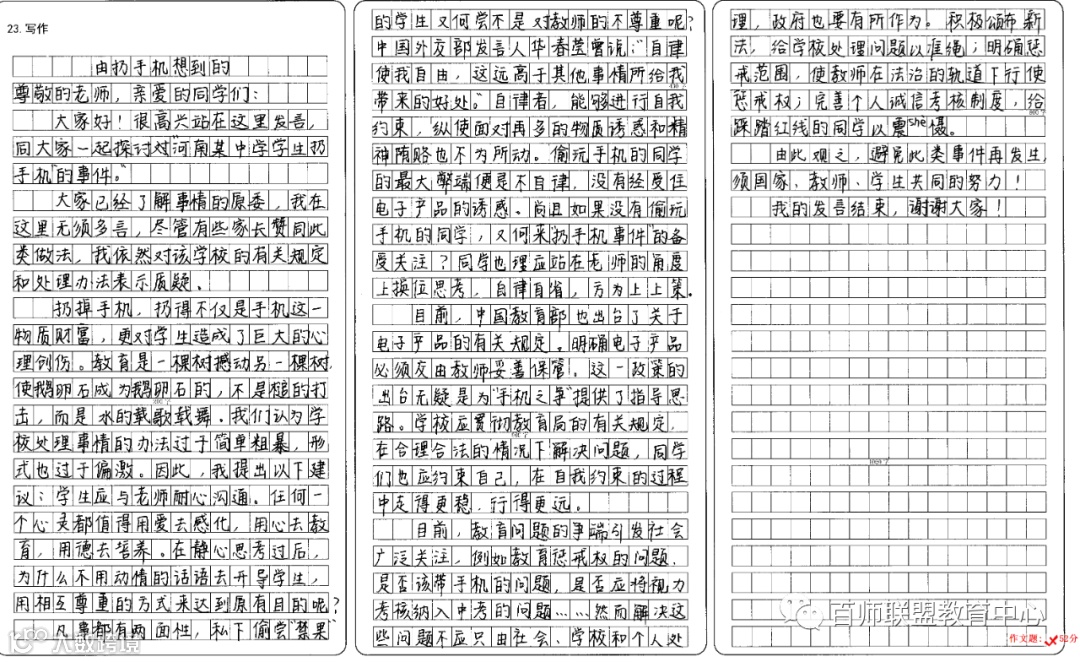 23. 写作
由扔手机想到的
尊敬的老师，亲爱的同学们：
大家好！很高兴站在这里发言，
同大家一起探讨对"河南某中学学生扔
手机"的事件。
大家已经了解事情的原委，我在
这里无须多言，尽管有些家长赞同此
类做法，我依然对该学校的有关规定
和处理办法表示质疑。
扔掉手机，扔得不仅是手机这一
物质财富，更对学生造成了巨大的心
理创伤。教育是一棵树撼动另一棵树，
使鹅卵石成为鹅卵石的，不是槌的打
击，而是水的载歌载舞。我们认为学
校处理事情的办法过于简单粗暴，形
式也过于偏激。因此，我提出以下建
议：学生应与老师耐心沟通。任何一
个心灵都值得用爱去感化，用心去教
育，用德去培养。在静心思考过后，
为什么不用动情的话语去开导学生，
用相互尊重的方式来达到原有目的呢？
凡事都有两面性，私下偷尝"禁果"
的学生又何尝不是对教师的不尊重呢？
中国外交部发言人华春莹曾说："自律
使我自由，这远高于其他事情所给我
带来的好处。"自律者，能够进行自我
约束，纵使面对再多的物质诱惑和精
神堕赂也不为所动。偷玩手机的同学
的最大弊端便是不自律，没有经受住
电子产品的诱惑。尚且如果没有偷玩
手机的同学，又何来"扔手机事件"的备
受关注？同学也理应站在老师的角度
上换位思考，自律自省，方为上上策。
目前，中国教育部也出台了关于
电子产品的有关规定。明确电子产品
必须交由教师妥善保管。这一政策的
出台无疑是为"手机之争"提供了指导思
路。学校应贯彻教育局的有关规定，
在合理合法的情况下解决问题，同学
们也应约束自己，在自我约束的过程
中走得更稳，行得更远。
目前，教育问题的争端引发社会
广泛关注，例如教育惩戒权的问题，
是否该带手机的问题，是否应将视力
考核纳入中考的问题……然而解决这
些问题不应只由社会、学校和个人处
理，政府也要有所作为。积极颁布新
法，给学校处理问题以准绳；明确惩
戒范围，使教师在法治的轨道下行使
惩戒权；完善个人诚信考核制度，给
踩踏红线的同学以震she慑。
由此观之，避免此类事件再发生，
须国家、教师、学生共同的努力！
我的发言结束，谢谢大家！
百师联盟教育中心
作文题：52分
大数跨境